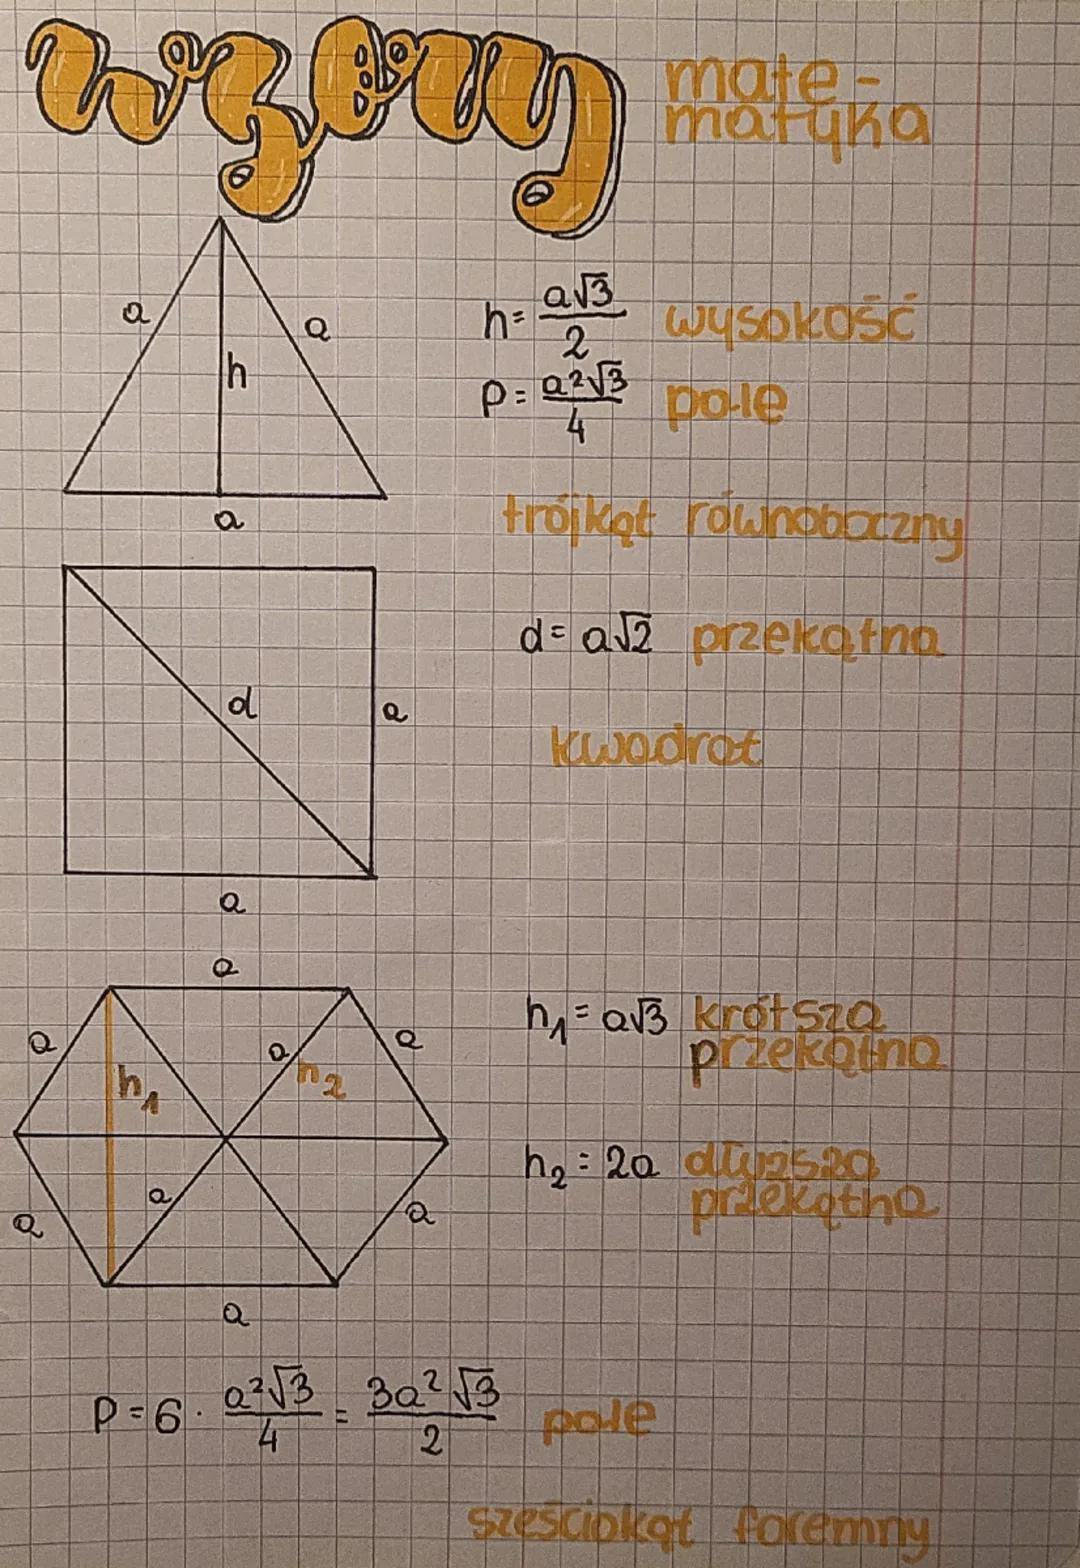 wzory
mate-
matyka
a
a
h
a
h = a√3/2 wysokość
P = a²√3/4 pole
trójkąt równoboczny
d
a
a
d = a√2 przekątna
kwadrat
a
a
a
a
h₁
h₂
a
a
a
a
h₁ = a√3 krótsza
przekątna
h₂ = 2a dłuższa
przekątna
P = 6 · a²√3/4 = 3a²√3/2 pole
sześciokąt foremny